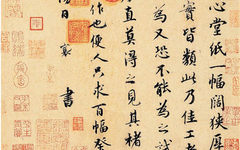 心堂紙一幅闊狹厚
實皆類此乃佳工者
為又恐不能為之試
直莫得之見其楮
作也便人只求百幅癸
陽日 襄 書